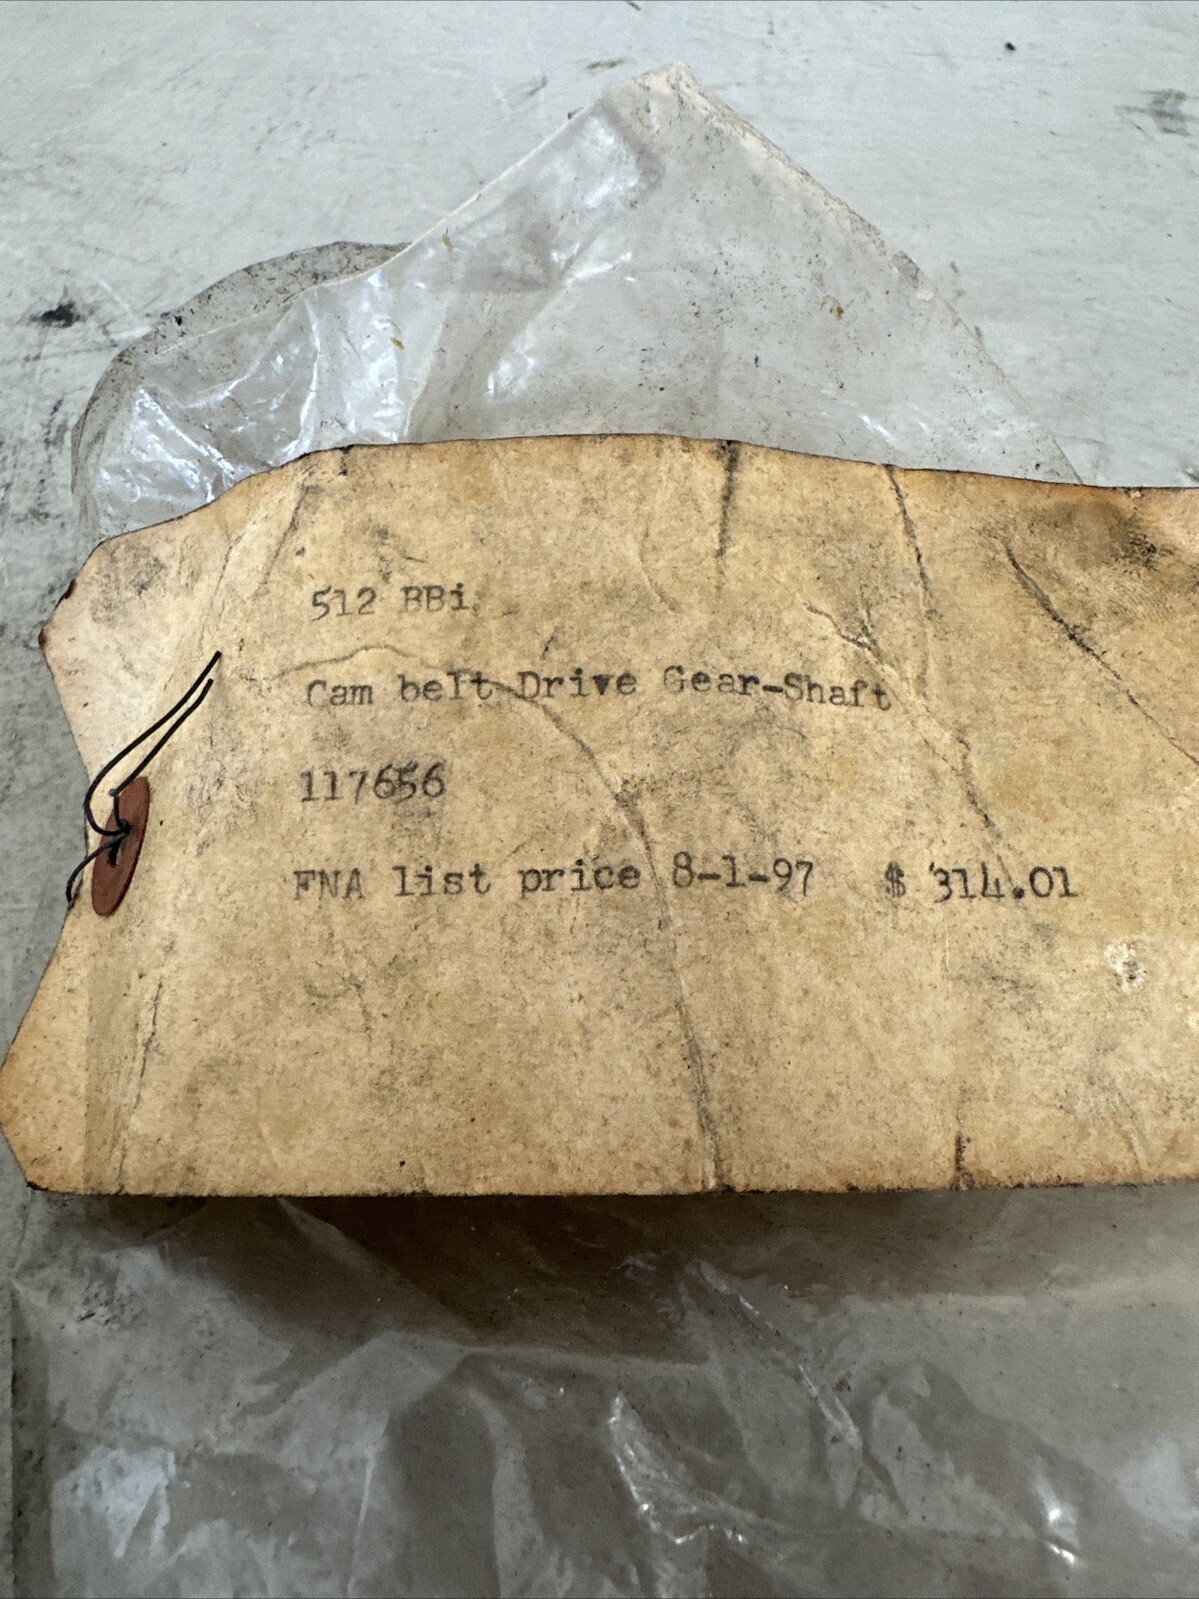 512 BBi
Cam belt Drive Gear-Shaft
117656
FNA list price 8-1-97 $ 314.01